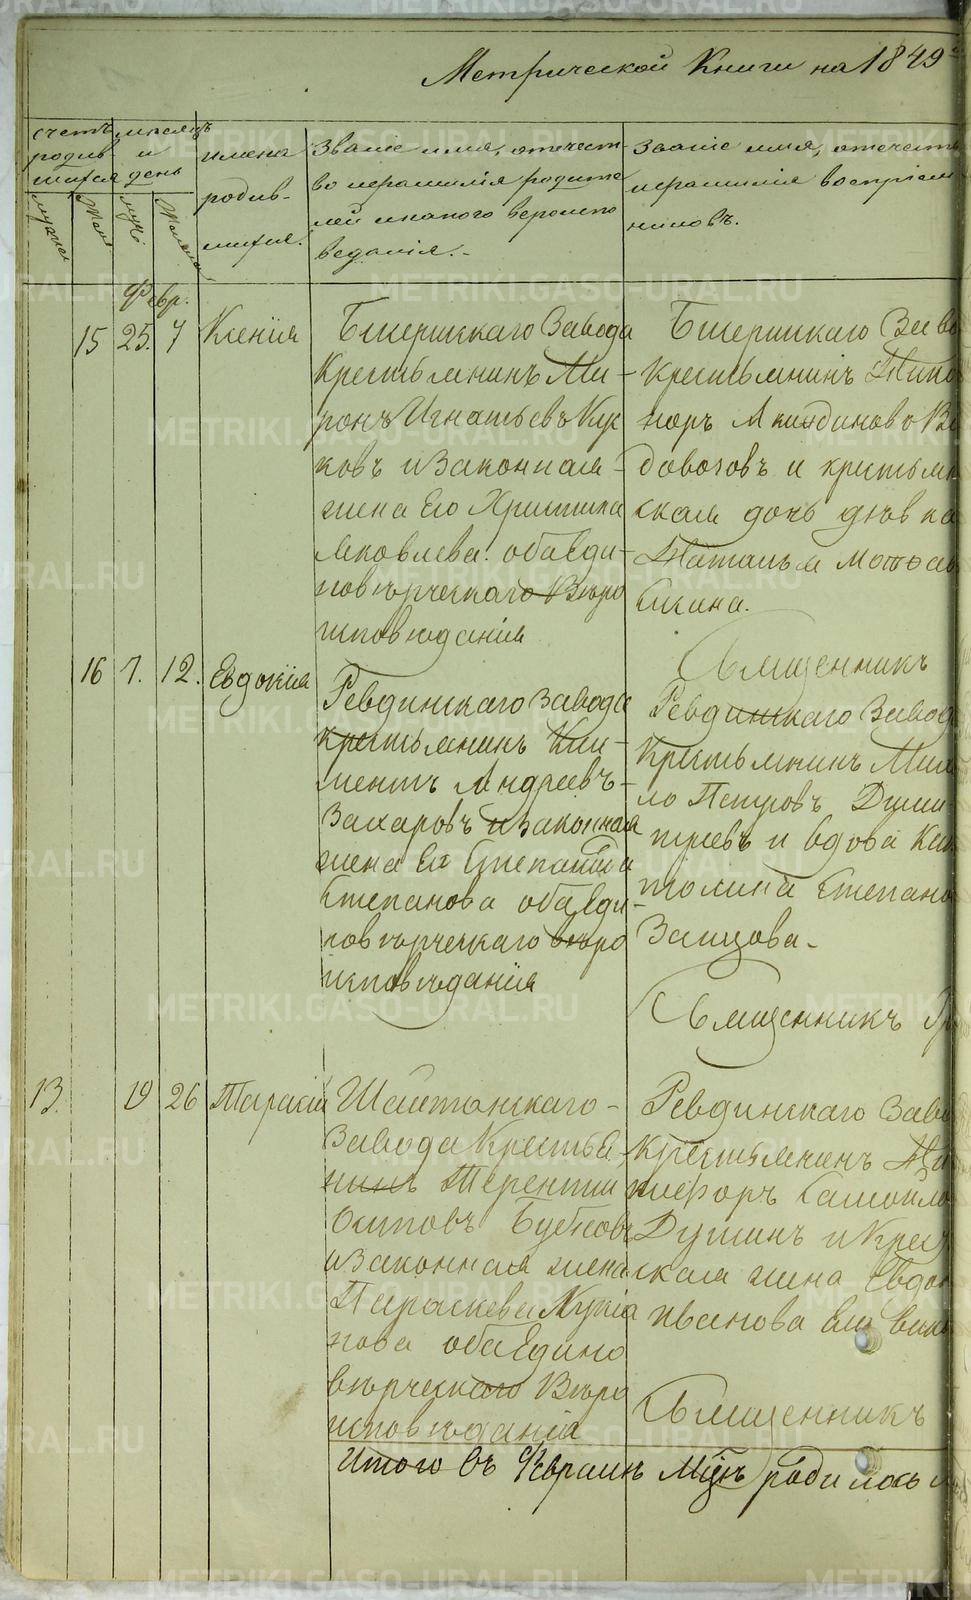 Метрической Книги на 1849
счетъ
родив
шихся
мужеска
Жен.
мѣсяцъ
и
день
муж.
Женска
имена
родив-
шихся.
Званіе имя, отечест-
во ифамилія родите
лей икакого вероиспо
веданія.-
Званіе имя, отечеств
ифамилія воспріем
никовъ.
Февр.
15 25. 7 Ксенія
Бисерскаго Завода
Крестьянинъ Ми-
ронъ Игнатьевъ Кус
ковъ иЗаконная
жена Его Христина
Яковлева. обаЕди-
новѣрческаго Вѣро
исповѣданія
Бисерскаго Заво
крестьянинъ Ника
норъ
довозовъ и крестьян
ская дочь дѣвка
Наталья
Священникъ
16 7. 12. Евдокія
Ревдинскаго Завода
крестьянинъ Кли-
ментъ Андреевъ-
Захаровъ иЗаконная
жена Ег Степанида
Степанова обаЕди-
новѣрческаго вѣро
исповѣданія
Ревдинскаго Завод
Крестьянинъ Миха
ло Петровъ Дми-
тріевъ и вдова Кап
толина Степано
Заицова-
Священникъ
13. 19 26 Тарасій
Шайтанскаго-
Завода Крестья
нинъ Терентій
Осиповъ Бубновъ
иЗаконная жена
Параскева Лукія
нова обаЕдино
вѣрческаго Вѣро
исповѣданія
Ревдинскаго Заво
Крестьянинъ Ни
кифоръ Самойло
Душинъ иКрес
ская жена Евдок
Иванова
Священникъ
Итого въ Февралѣ Мцѣ родилось
METRIKI.GASO-URAL.RU